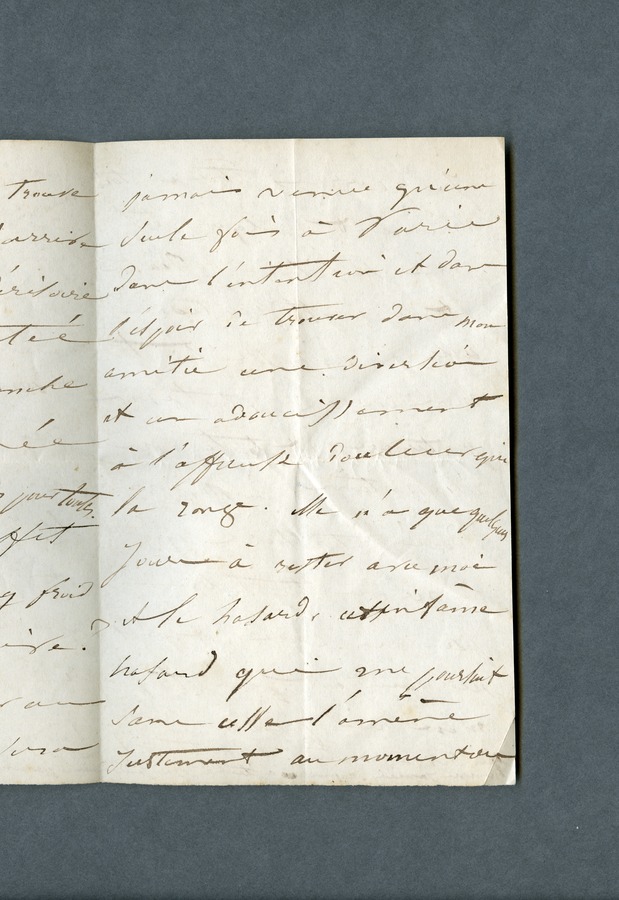 trouve
arrive
té
née
pour toute
ffet
froid
jamais venue qu'une
seule fois à Paris
dans l'intention et dans
l'espoir de trouver dans mon
amitié une diversion
et un adoucissement
à l'affreuse douleur qui
la ronge. Elle n'a que quelques
jours à rester avec moi
et le hasard, cet infâme
hasard qui me poursuit
sans cesse l'amène
justement au moment où